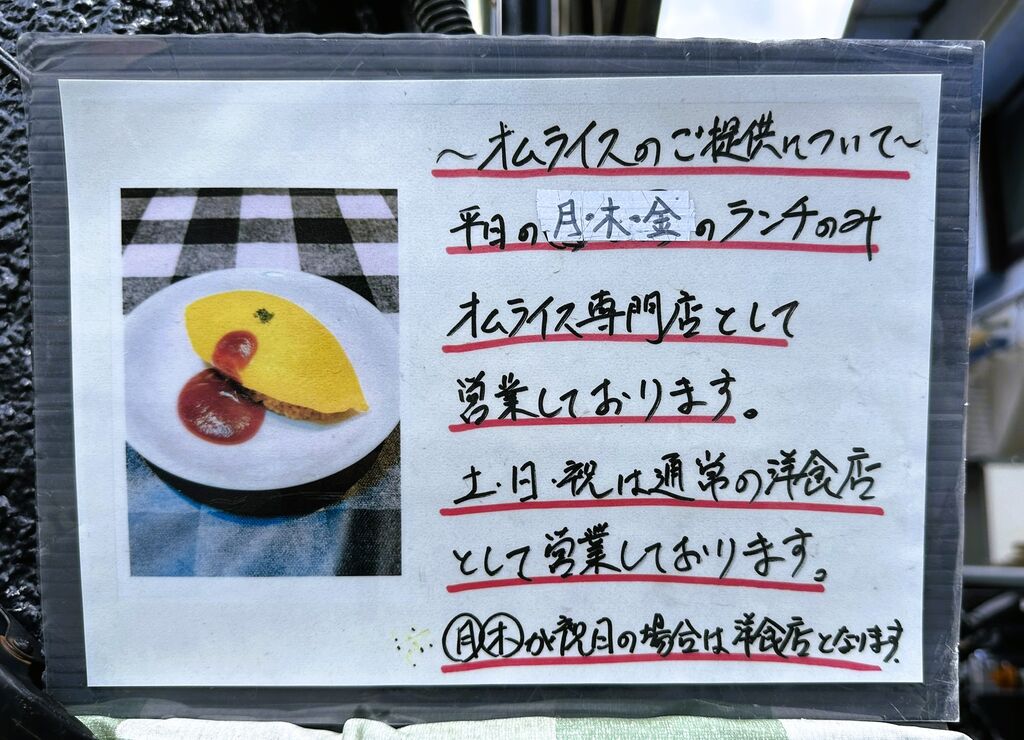 〜オムライスのご提供について〜
平日の月・木・金のランチのみ
オムライス専門店として
営業しております。
土・日・祝は通常の洋食店
として営業しております。
㊊㊍が祝日の場合は洋食店となります。